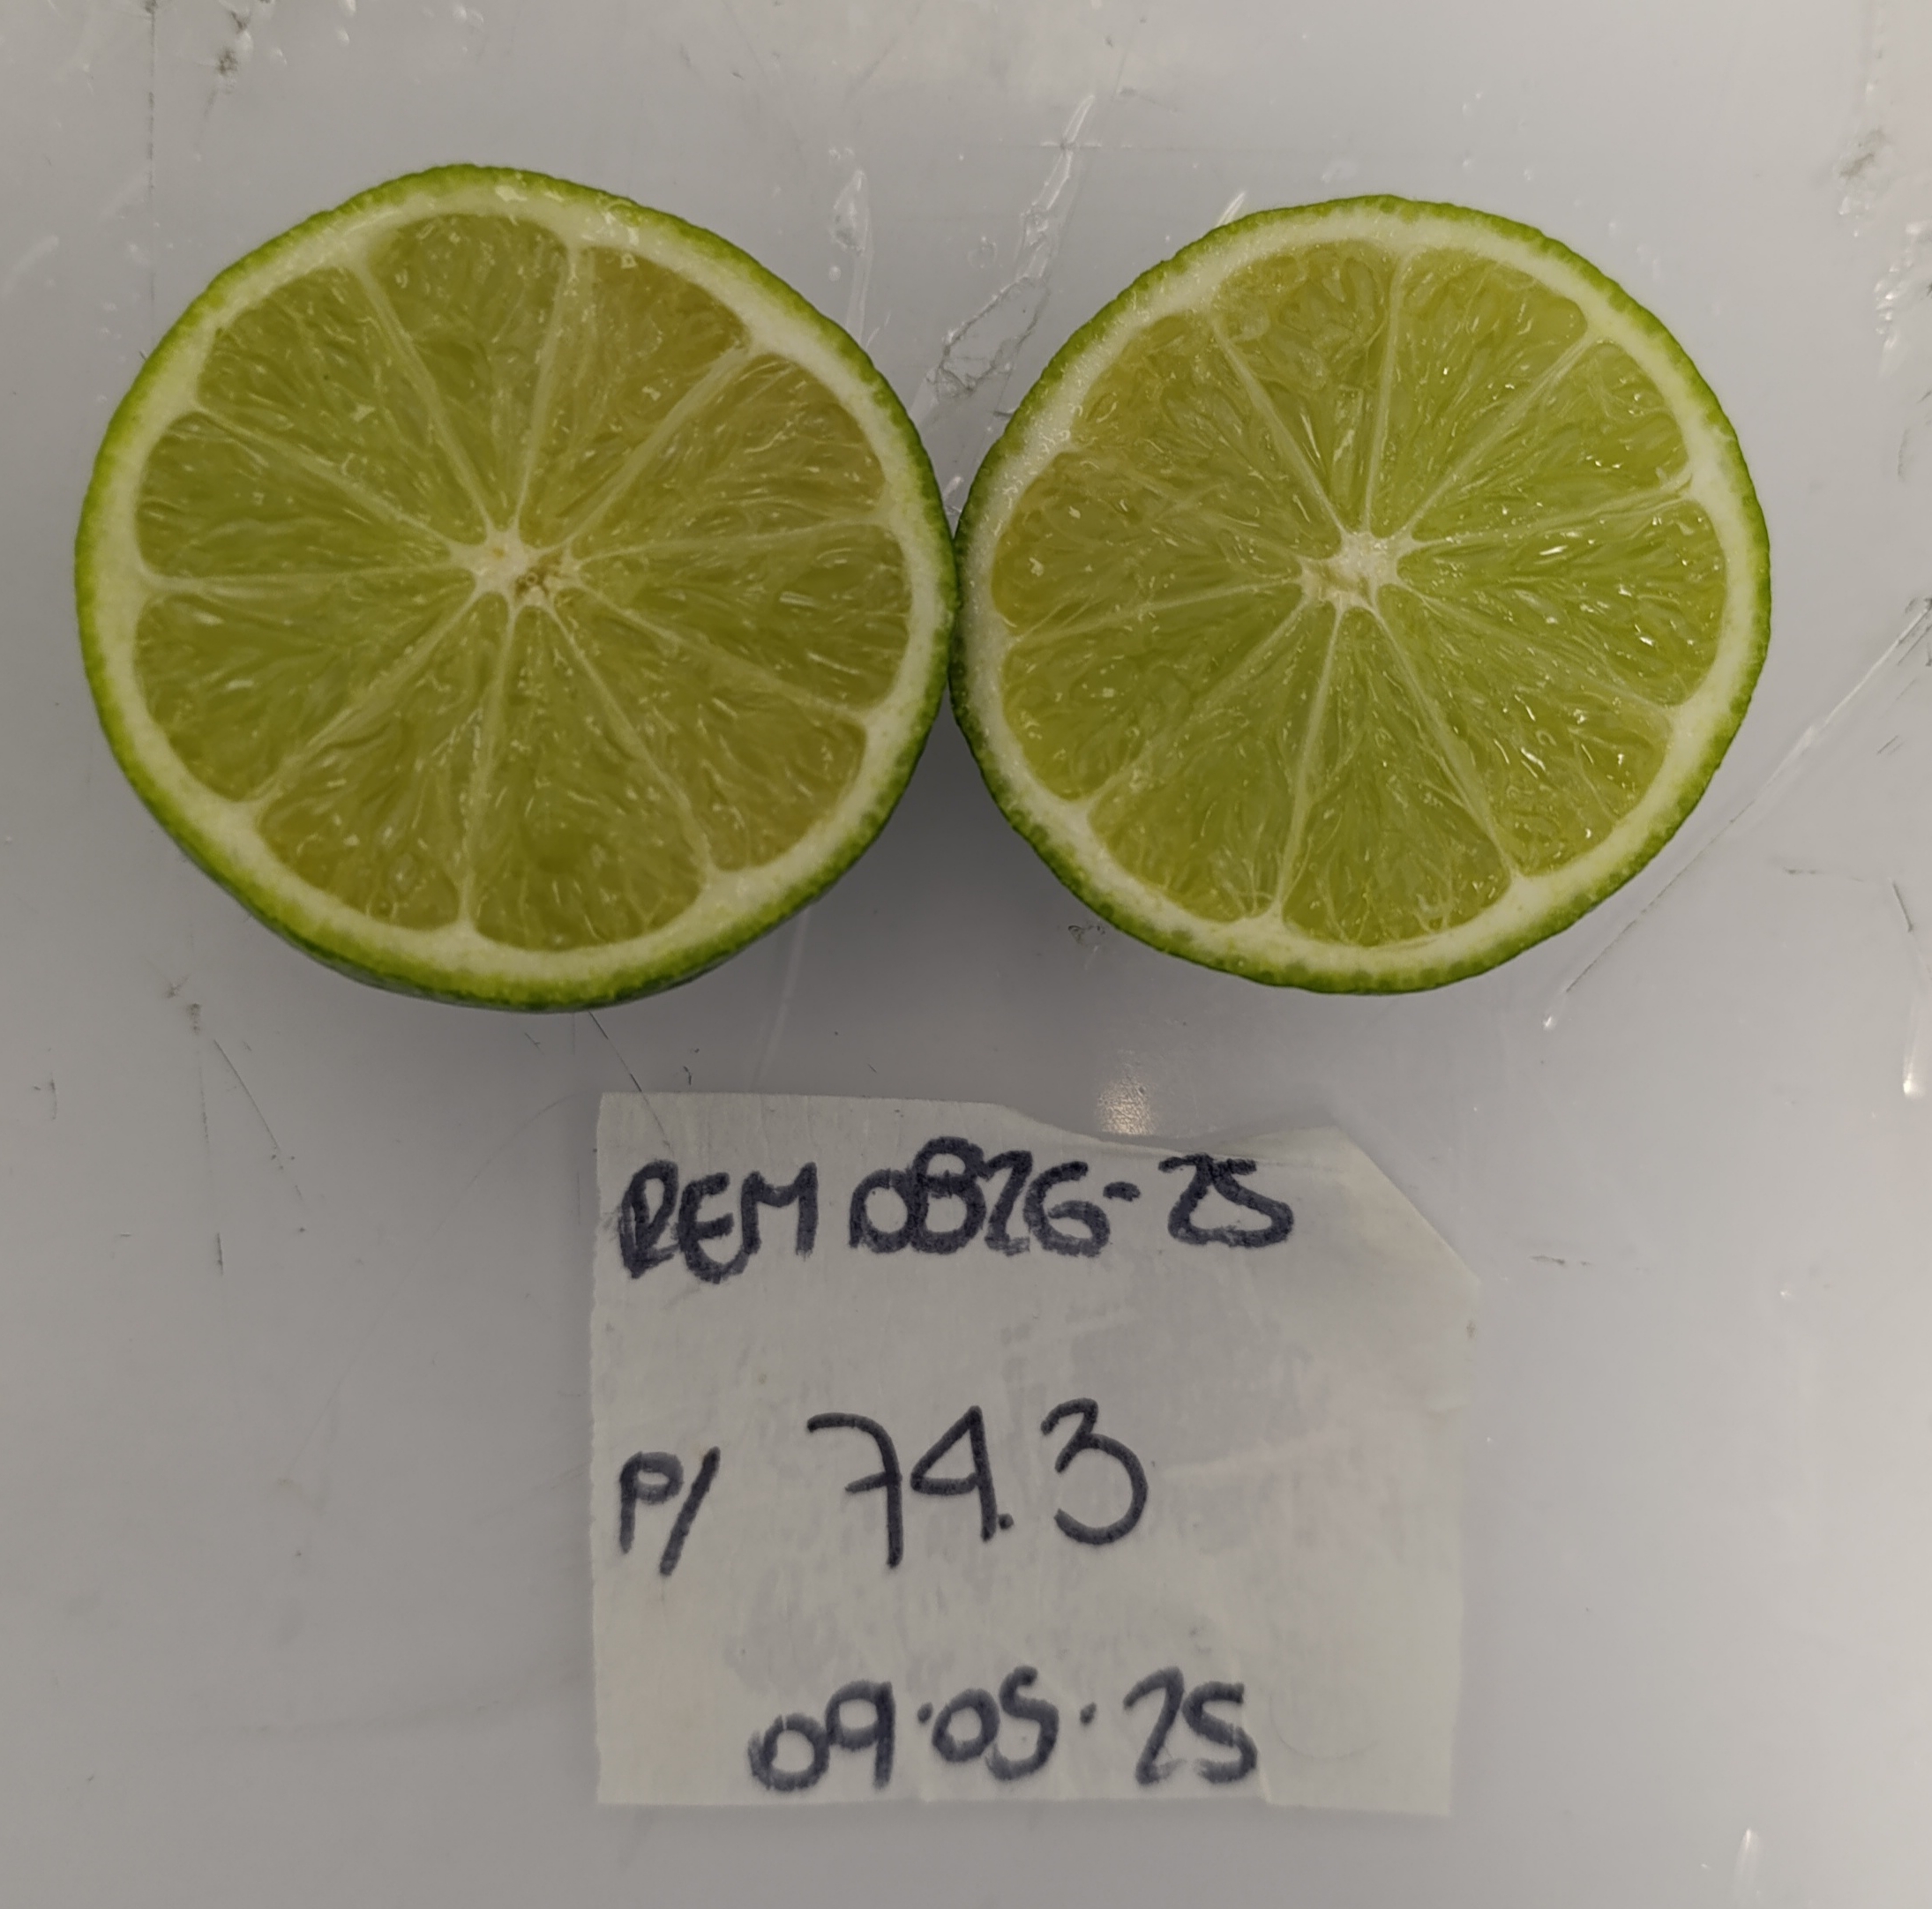 REM 0826-25
P/ 74.3
09.05.25